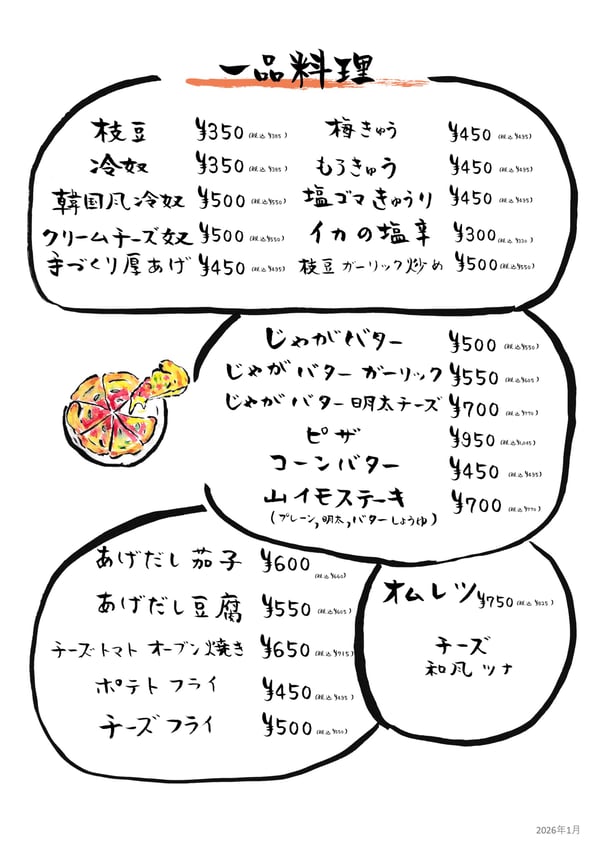 一品料理
枝豆 ¥350(税込¥385) 梅きゅう ¥450(税込¥495)
冷奴 ¥350(税込¥385) もろきゅう ¥450(税込¥495)
韓国風冷奴 ¥500(税込¥550) 塩ゴマきゅうり ¥450(税込¥495)
クリームチーズ奴 ¥500(税込¥550) イカの塩辛 ¥300(税込¥330)
手づくり厚あげ ¥450(税込¥495) 枝豆ガーリック炒め ¥500(税込¥550)
じゃがバター ¥500(税込¥550)
じゃがバターガーリック ¥550(税込¥605)
じゃがバター明太チーズ ¥700(税込¥770)
ピザ ¥950(税込¥1,045)
コーンバター ¥450(税込¥495)
山イモステーキ ¥700(税込¥770)
(プレーン,明太,バターしょうゆ)
あげだし茄子 ¥600(税込¥660)
あげだし豆腐 ¥550(税込¥605)
チーズトマトオーブン焼き ¥650(税込¥715)
ポテトフライ ¥450(税込¥495)
チーズフライ ¥500(税込¥550)
オムレツ ¥750(税込¥825)
チーズ
和風ツナ
2026年1月